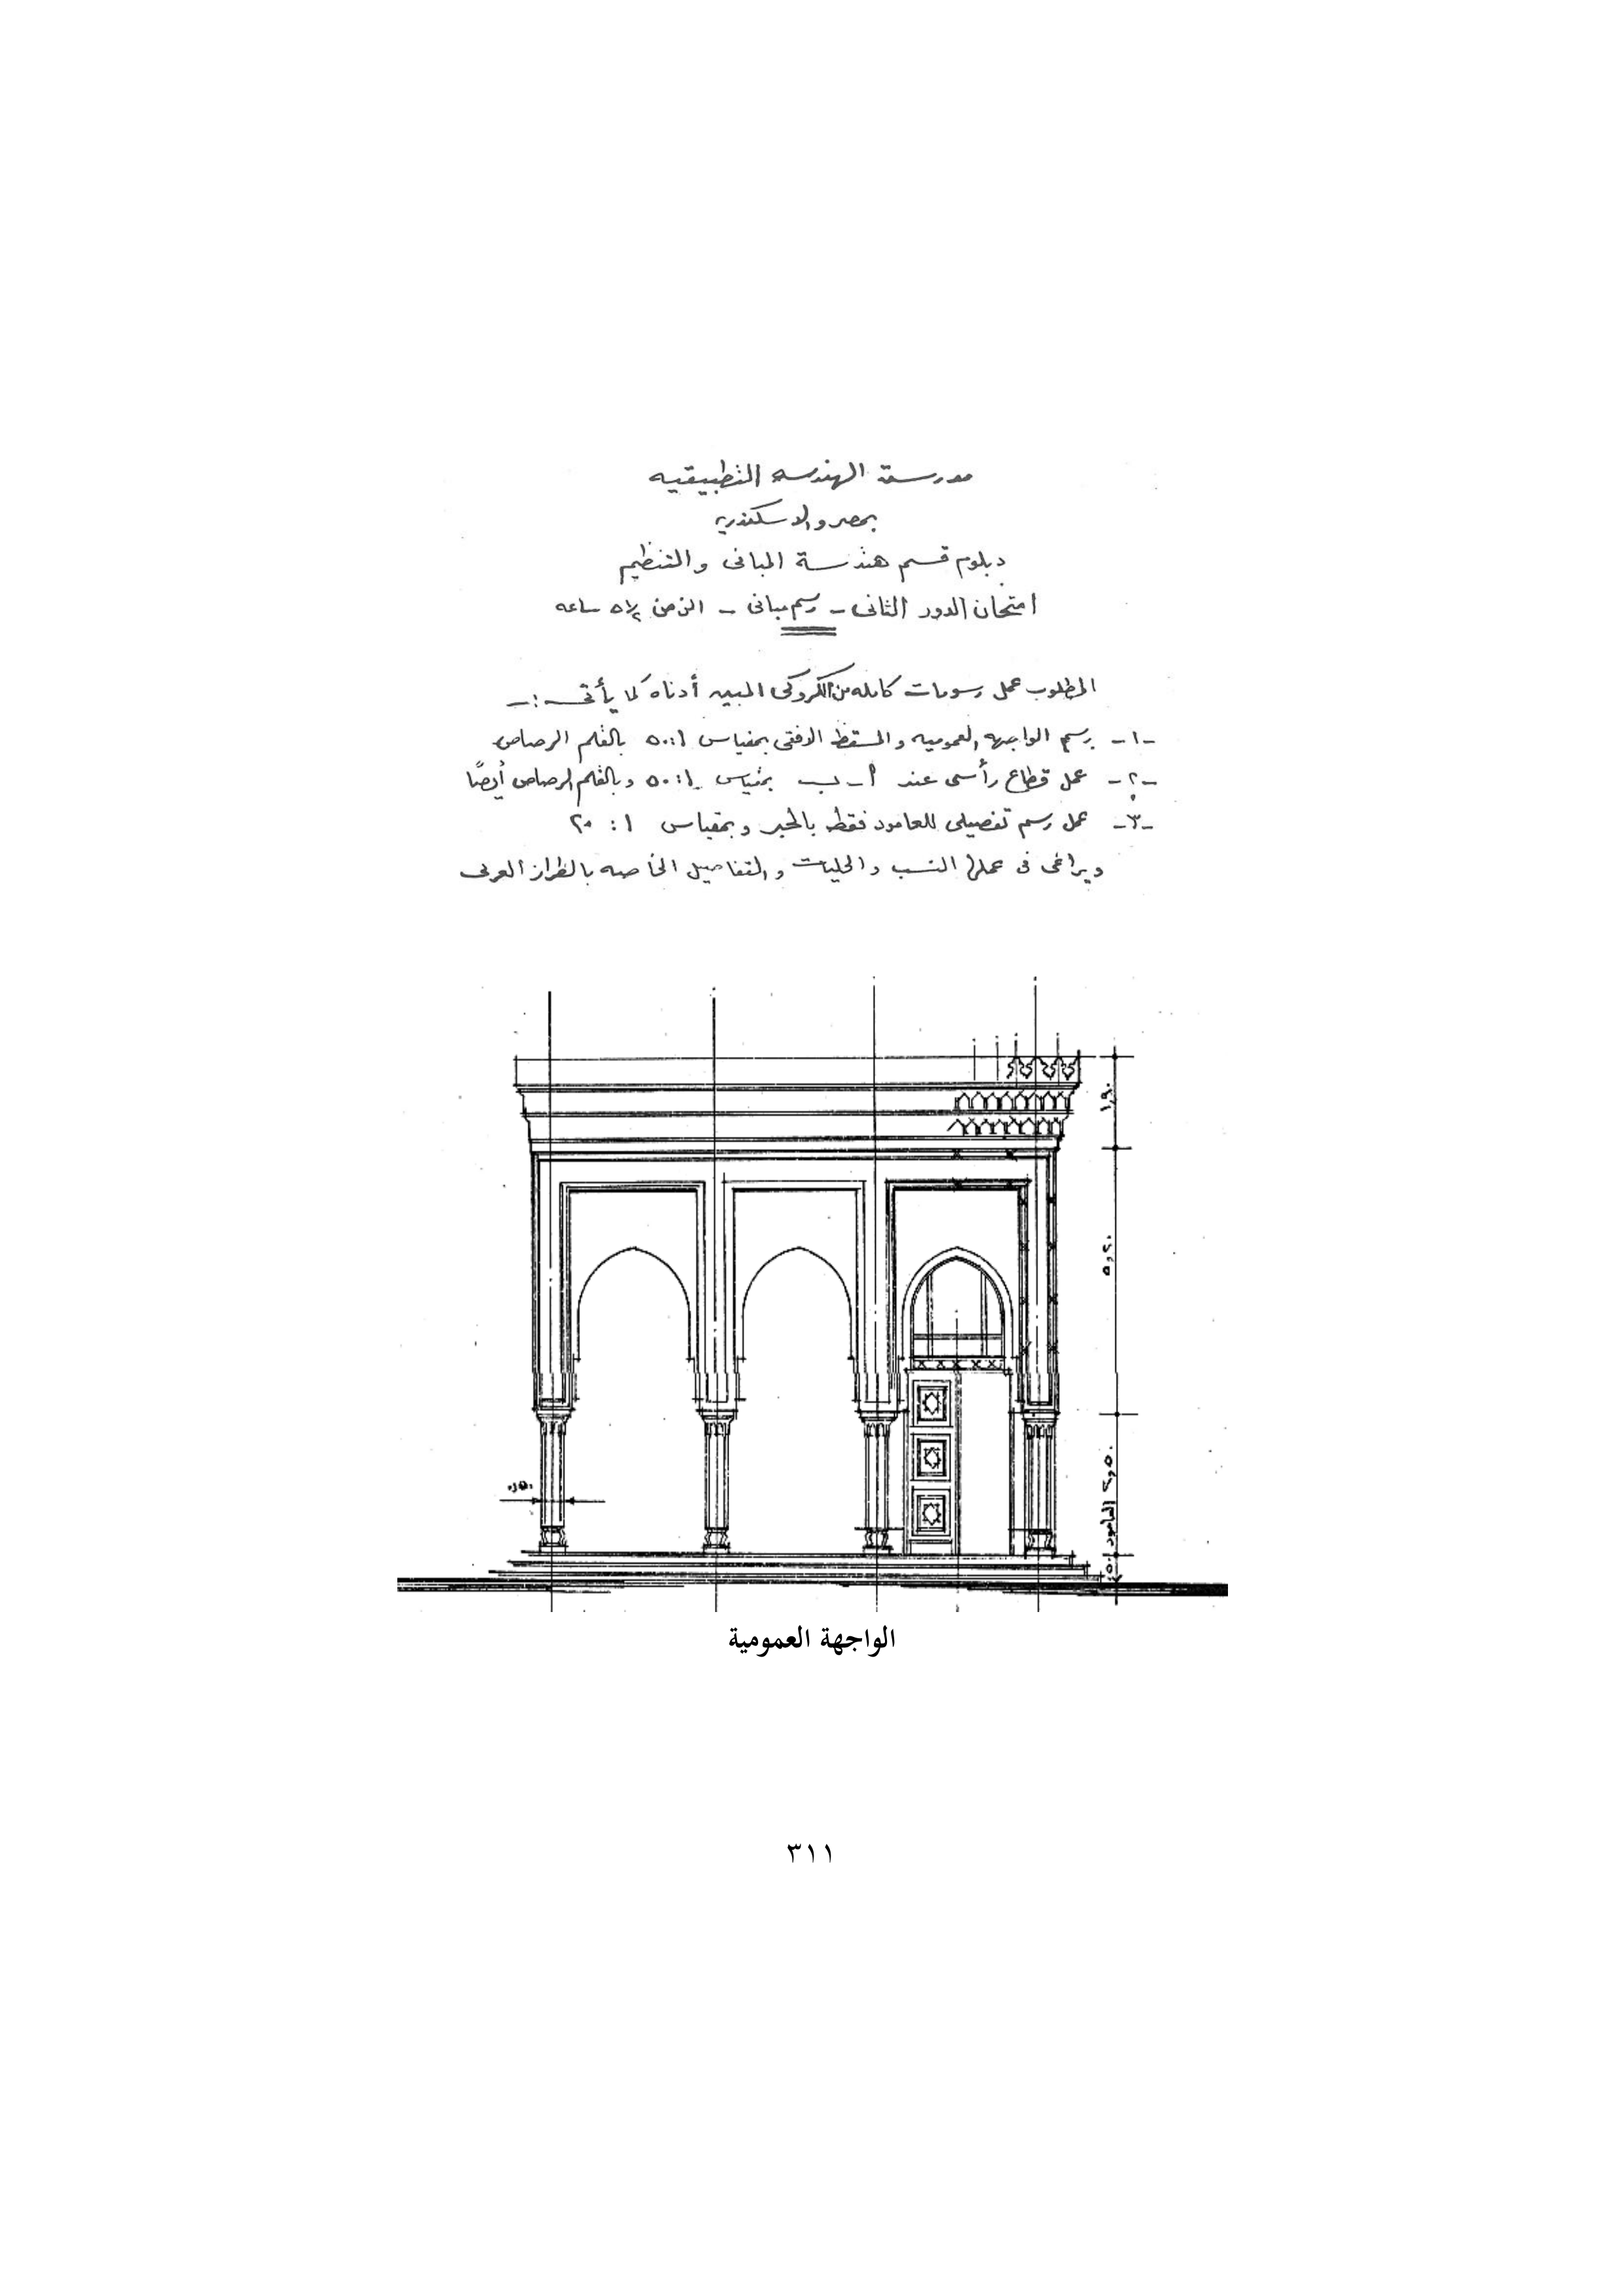 مدرسة الهندسه التطبيقيه
بمصر والاسكندريه
دبلوم قسم هندسة المبانى والتنظيم
امتحان الدور الثانى - رسم مبانى - الزمن ٥½ ساعه
المطلوب عمل رسومات كامله من الكروكى المبين أدناه كما يأتى :-
-١- رسم الواجهه العموميه والمسقط الافقى بمقياس ١:٥٠ بالقلم الرصاص
-٢- عمل قطاع رأسى عند أ-ب بمقياس ١:٥٠ وبالقلم الرصاص أيضًا
-٣- عمل رسم تفصيلى للعامود فقط بالحبر وبمقياس ١:٢٠
ويراعى فى عملها النسب والحليات والتفاصيل الخاصه بالطراز العربى
١,٩٠
٥,٢٠
٢,٥٠ العامود
الواجهة العمومية
٣١١